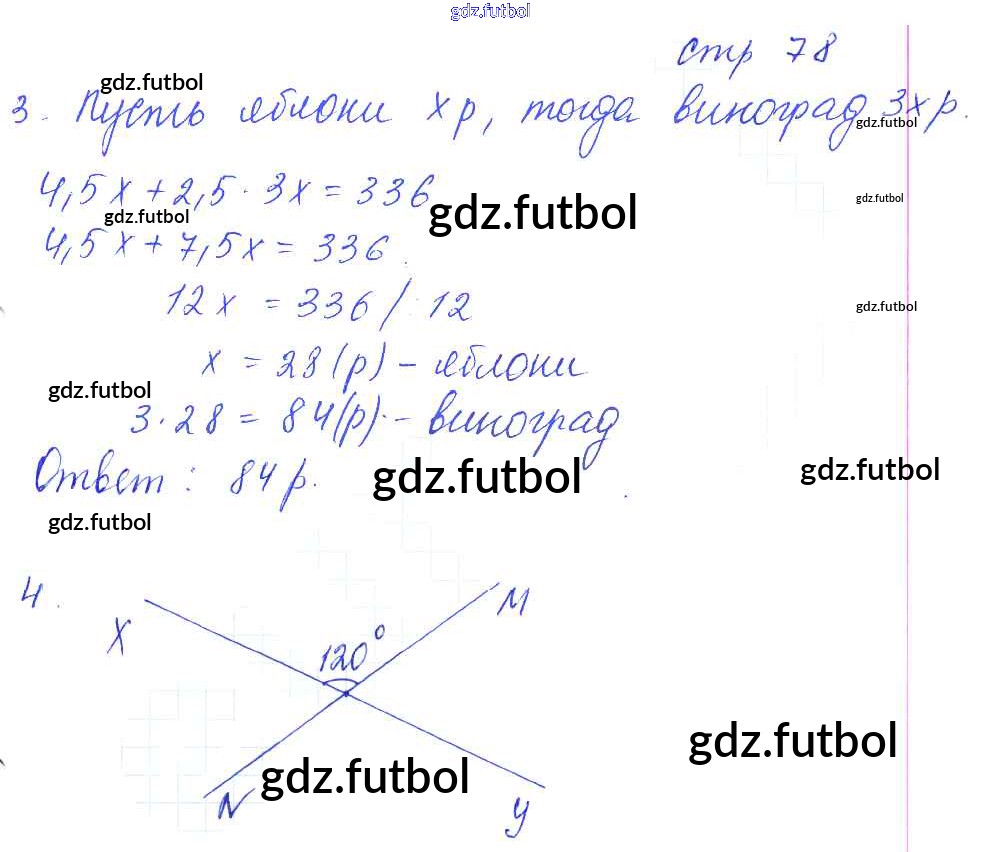 gdz.futbol
стр 78
gdz.futbol
3. Пусть яблоки x р, тогда виноград 3x р.
gdz.futbol
4,5x + 2,5 · 3x = 336
gdz.futbol
gdz.futbol
gdz.futbol
4,5x + 7,5x = 336
12x = 336 / : 12
gdz.futbol
x = 28 (р) - яблоки
gdz.futbol
3 · 28 = 84 (р) - виноград
Ответ: 84 р.
gdz.futbol
gdz.futbol
gdz.futbol
4.
X
M
120°
gdz.futbol
gdz.futbol
N
y